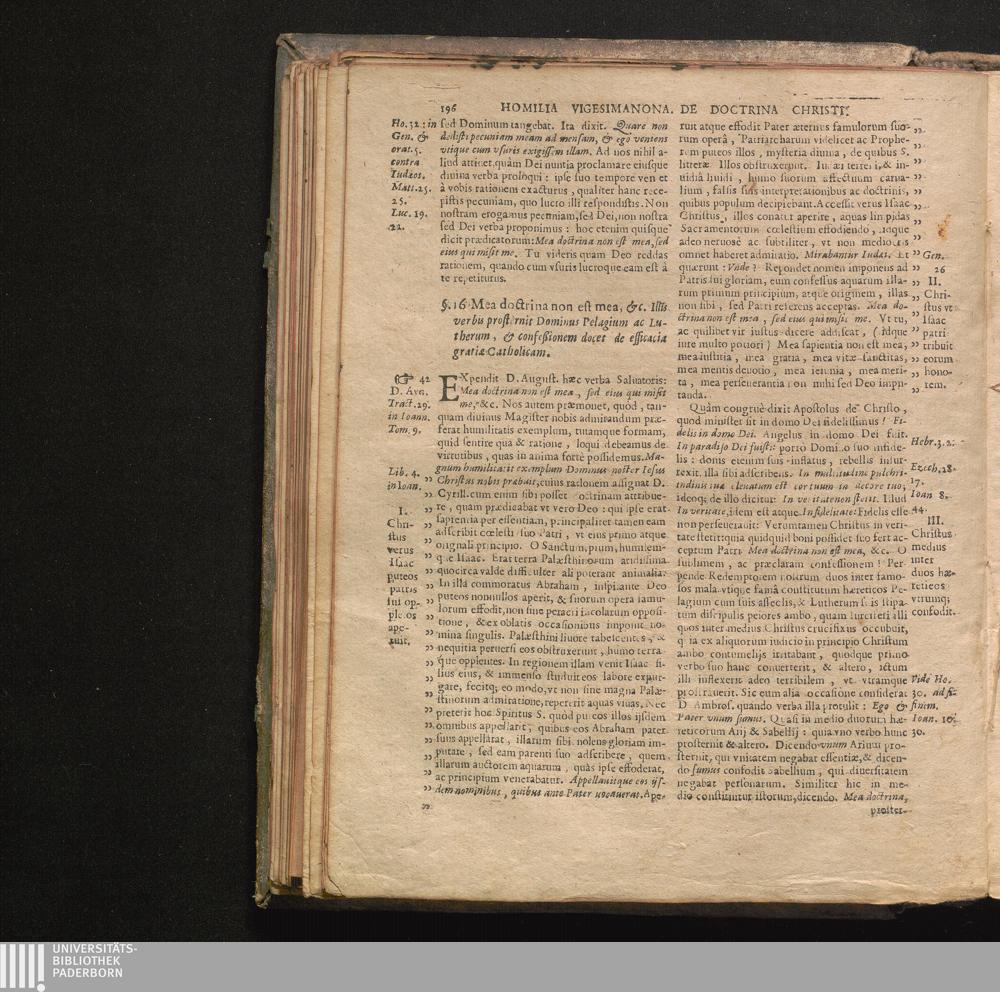 196 HOMILIA VIGESIMANONA. DE DOCTRINA CHRISTI.
Ho. 32: in
Gen. &
orat. 5.
contra
Iudæos.
Matt. 25.
25.
Luc. 19.
22.
sed Dominum tangebat. Ita dixit. Quare non
dedisti pecuniam meam ad mensam, & ego veniens
vtique cum vsuris exigissem illam. Ad nos nihil a-
liud attinet, quàm Dei nuntia proclamare eiusque
diuina verba proloqui: ipse suo tempore ven et
à vobis rationem exacturus, qualiter hanc rece-
pistis pecuniam, quo lucro illi respondistis. Non
nostram erogamus pecuniam, sed Dei, non nostra
sed Dei verba proponimus: hoc etenim quisque
dicit prædicatorum: Mea doctrina non est mea, sed
eius qui misit me. Tu videris quam Deo reddas
rationem, quando cum vsuris lucroque eam est à
te repetiturus.
§. 16 Mea doctrina non est mea, &c. Illis
verbis prosternit Dominus Pelagium ac Lu-
therum, & confeßionem docet de efficacia
gratiæ Catholicam.
42
D. Aug.
Tract. 29.
in Ioann.
Tom. 9.
Lib. 4.
in Ioan.
I.
Chri-
stus
verus
Isaac
puteos
patris
sui op-
pletos
ape-
ruit.
EXpendit D. August. hæc verba Saluatoris:
Mea doctrina non est mea, sed eius qui misit
me, &c. Nos autem præmonet, quòd, tan-
quam diuinus Magister nobis admirandum præ-
ferat humilitatis exemplum, tutamque formam,
quid sentire qua & ratione, loqui debeamus de
virtutibus, quas in anima fortè possidemus. Ma-
gnum humilitatis exemplum Dominus noster Iesus
Christus nobis præbuit, cuius rationem assignat D.
Cyrill. cum enim sibi posset doctrinam attribue-
re, quam prædicabat vt vero Deo: qui ipse erat
sapientia per essentiam, principaliter tamen eam
adscribit cœlesti suo Patri, vt eius primo atque
originali principio. O Sanctum, pium, humilem-
que Isaac. Erat terra Palæsthinorum aridissima
quocirca valde difficulter ali poterant animalia.
In illa commoratus Abraham, inspirante Deo
puteos nonnullos aperit, & suorum opera famu-
lorum effodit, non sine peracri incolarum opposi-
tione, & ex oblatis occasionibus imponit no-
mina singulis. Palæsthini liuore tabescentes, &
nequitia peruersi eos obstruxerunt, humo terra-
que opplentes. In regionem illam venit Isaac fi-
lius eius, & immenso studuit eos labore expur-
gare, fecitq; eo modo, vt non sine magna Palæ-
stinorum admiratione, repererit aquas viuas. Nec
preterit hoc Spiritus S. quòd puteos illos ijsdem
omnibus appellarit, quibus eos Abraham pater
suus appellârat, illarum sibi nolens gloriam im-
putare, sed eam parenti suo adscribere, quem
illarum auctorem aquarum, quàs ipse effoderat,
ac principium venerabatur. Appellauitque eos ijs-
dem nominibus, quibus ante Pater vocauerat. Ape-
ruit atque effodit Pater æternus famulorum suo-
rum operâ, Patriarcharum videlicet ac Prophe-
rum puteos illos, mysteria diuina, de quibus S.
litteræ. Illos obstruxerunt. Iudæi terreni, & in-
uidiâ liuidi, humo suorum affectuum carna-
lium, falsis suis interpretationibus ac doctrinis,
quibus populum decipiebant. Accessit verus Isaac
Christus, illos conatur aperire, aquas limpidas
Sacramentorum cœlestium effodiendo, idque
adeo neruosè ac subtiliter, vt non mediocris
omnes haberet admiratio. Mirabantur Iudæi. Et
quærunt: Vnde? Repondet nomen imponens ad
Patris sui gloriam, eum confessus aquarum illa-
rum primum principium, atque originem, illas
non sibi, sed Patri referens acceptas. Mea do-
ctrina non est mea, sed eius qui misit me. Vt tu,
ac quilibet vir iustus dicere addiscat, (idque
iure multo potiori) Mea sapientia non est mea,
mea iustitia, mea gratia, mea vitæ sanctitas,
mea mentis deuotio, mea ieiunia, mea meri-
ta, mea perseuerantia non mihi sed Deo impu-
tanda.
Quàm congruè dixit Apostolus de Christo,
quod minister sit in domo Dei fidelissimus! Fi-
delis in domo Dei. Angelus in domo Dei fuit.
In paradiso Dei fuisti: porrò Domino suo infide-
lis: donis etenim suis inflatus, rebellis insur-
rexit, illa sibi adscribens. In multitudine pulchri-
tudinis tuæ eleuatum est cor tuum in decore tuo;
ideoq; de illo dicitur: In veritate non stetit. Illud
In veritate, idem est atque. In fidelitate: Fidelis esse
non perseuerauit: Verumtamen Christus in veri-
tate stetit quia quidquid boni possidet suo fert ac-
ceptum Patri. Mea doctrina non est mea, &c. O
sublimem, ac præclaram confessionem! Per-
pende Redemptorem nostrum duos inter famo-
sos mala vtique famâ constitutum hæreticos Pe-
lagium cum suis asseclis, & Lutherum suis stipa-
tum discipulis peiores ambo, quàm furciferi illi
quos inter medius Christus crucifixus occubuit,
quia ex aliquorum iudicio in principio Christum
ambo contumelijs irritabant, quodque primo
verbo suo hanc conuerterit, & altero, ictum
illi inflexerit adeo terribilem, vt vtramque
prostrauerit. Sic eum alia occasione considerat
D. Ambros. quando verba illa protulit: Ego &
Pater vnum sumus. Quasi in medio duorum hæ-
reticorum Arij & Sabellij: quia vno verbo hunc
prosternit & altero. Dicendo vnum Arium pro-
sternit, qui vnitatem negabat essentiæ, & dicen-
do sumus confodit Sabellium, qui diuersitatem
negabat personarum. Similiter hic in me-
dio constituitur istorum, dicendo. Mea doctrina,
proster-
Gen.
26
II.
Chri-
stus vt
Isaac
patri
tribuit
eorum
hono-
rem.
Hebr. 3. 2.
Ezech. 28.
17.
Ioan 8.
44.
III.
Christus
medius
inter
duos hæ-
reticos
vtrunq;
confodit.
Vide Ho.
30. ad fi-
finem.
Ioan. 10.
30.
UNIVERSITÄTS-
BIBLIOTHEK
PADERBORN